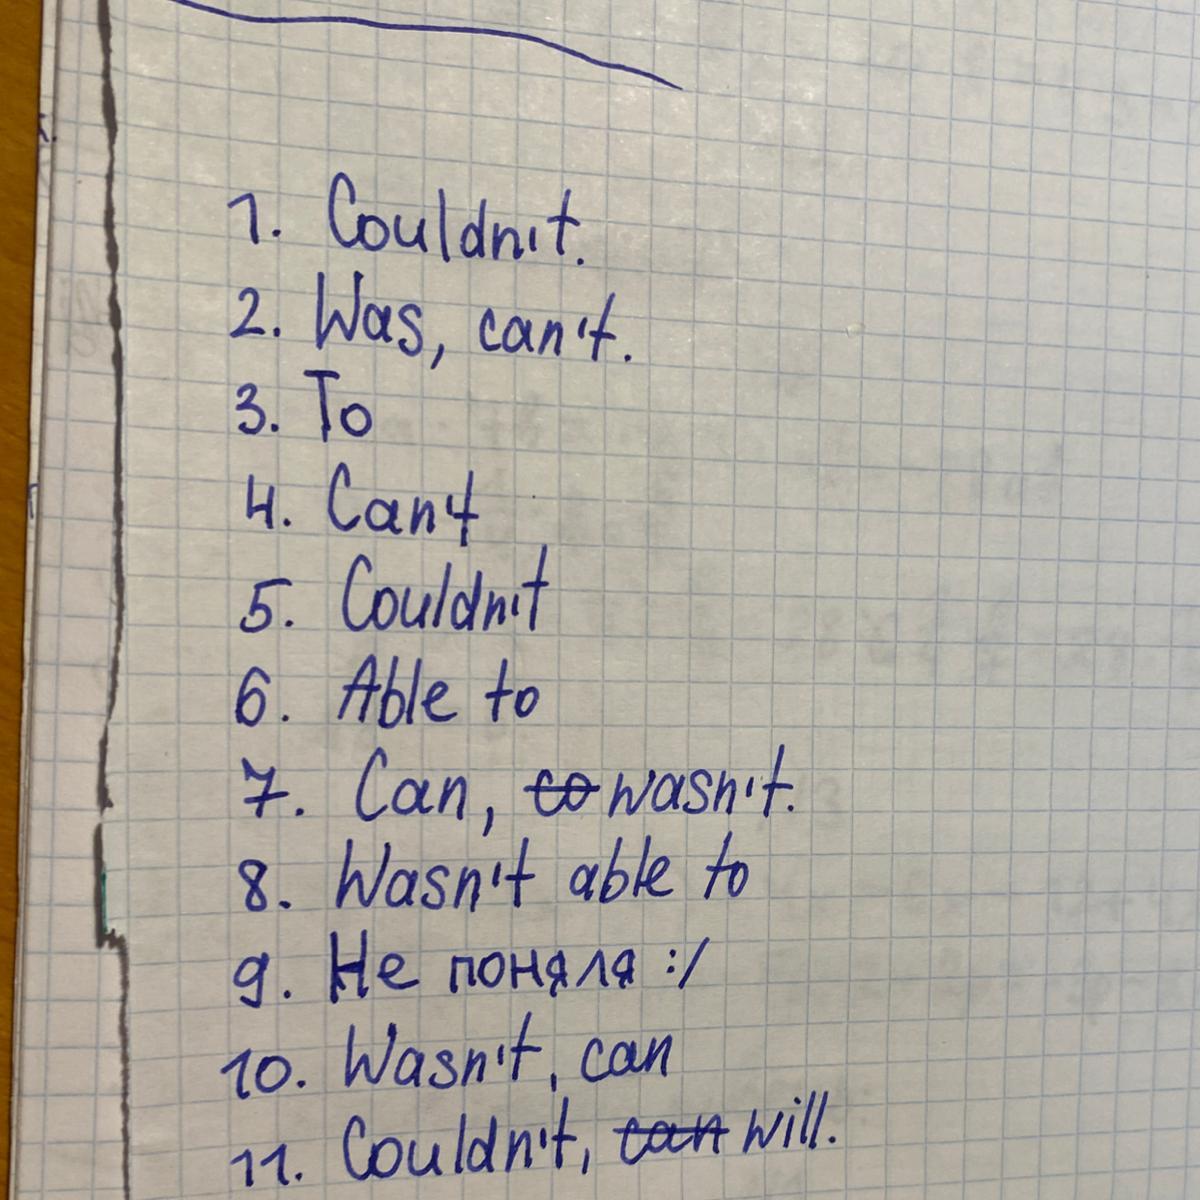 1. Couldn't.
2. Was, can't.
3. To
4. Can't
5. Couldn't
6. Able to
7. Can, co wasn't.
8. Wasn't able to
9. Не поняля :/
10. Wasn't, can
11. Couldn't, can will.